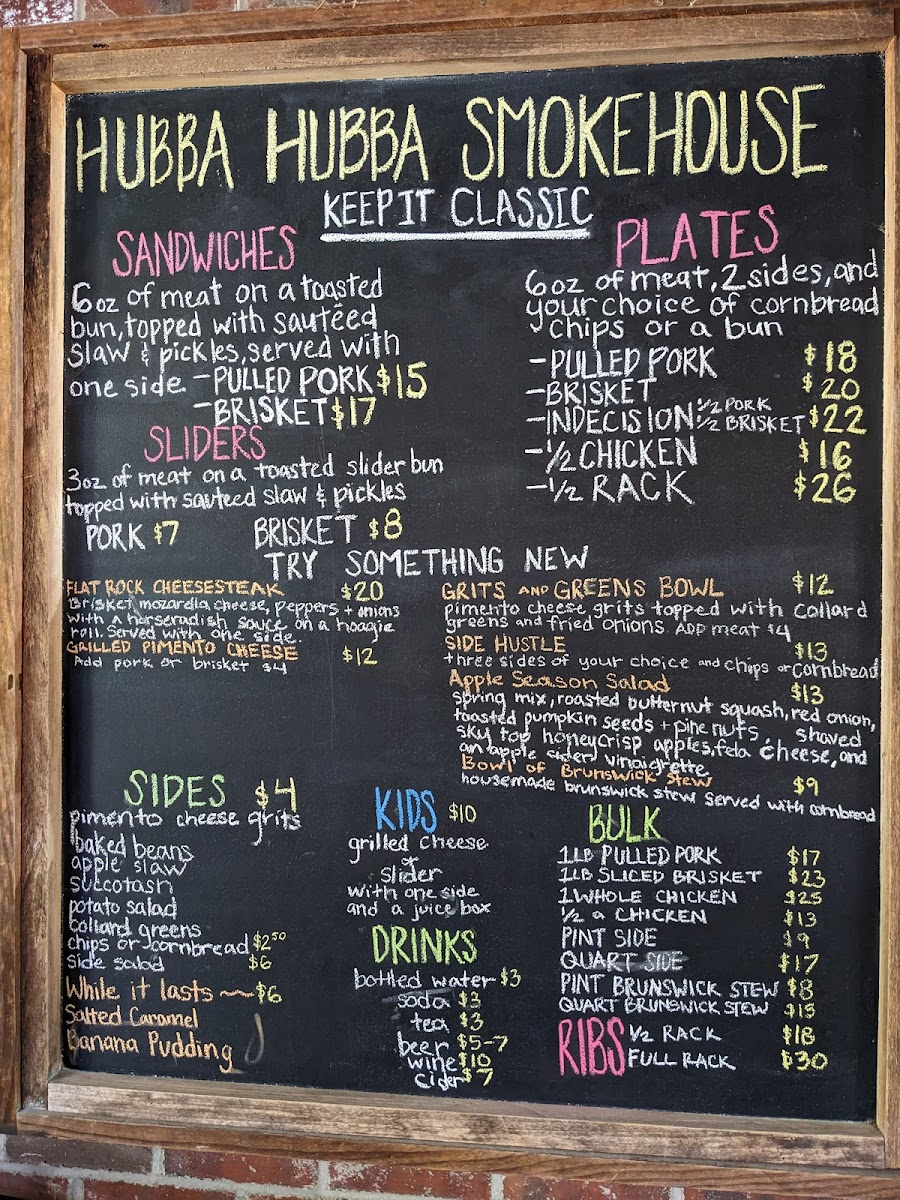 HUBBA HUBBA SMOKEHOUSE
KEEP IT CLASSIC
SANDWICHES
6oz of meat on a toasted
bun, topped with sautéed
slaw & pickles, served with
one side - PULLED PORK $15
- BRISKET $17
SLIDERS
3oz of meat on a toasted slider bun
topped with sauteed slaw & pickles
PORK $7 BRISKET $8
PLATES
6 oz of meat, 2 sides, and
your choice of cornbread
chips or a bun
- PULLED PORK $18
- BRISKET $20
- INDECISION: 1/2 PORK 1/2 BRISKET $22
- 1/2 CHICKEN $16
- 1/2 RACK $26
TRY SOMETHING NEW
FLAT ROCK CHEESESTEAK $20
Brisket, mozarella cheese, peppers + onions
with a horseradish sauce on a hoagie
roll. Served with one side.
GRILLED PIMENTO CHEESE $12
Add pork or brisket $4
GRITS AND GREENS BOWL $12
pimento cheese grits topped with collard
greens and fried onions. ADD meat $4
SIDE HUSTLE $13
three sides of your choice and chips or cornbread
Apple Season Salad $13
spring mix, roasted butternut squash, red onion,
toasted pumpkin seeds + pine nuts, shaved
sky top honeycrisp apples, feta cheese, and
an apple cider vinaigrette
Bowl of Brunswick Stew $9
housemade brunswick stew served with cornbread
SIDES $4
pimento cheese grits
baked beans
apple slaw
succotash
potato salad
collard greens
chips or cornbread $2.50
side salad $6
While it lasts ~ $6
Salted Caramel
Banana Pudding
KIDS $10
grilled cheese
or
slider
with one side
and a juice box
DRINKS
bottled water $3
soda $3
tea $3
beer $5-7
wine $10
cider $7
BULK
1LB PULLED PORK $17
1LB SLICED BRISKET $23
1 WHOLE CHICKEN $25
1/2 a CHICKEN $13
PINT SIDE $9
QUART SIDE $17
PINT BRUNSWICK STEW $8
QUART BRUNSWICK STEW $15
RIBS 1/2 RACK $18
FULL RACK $30